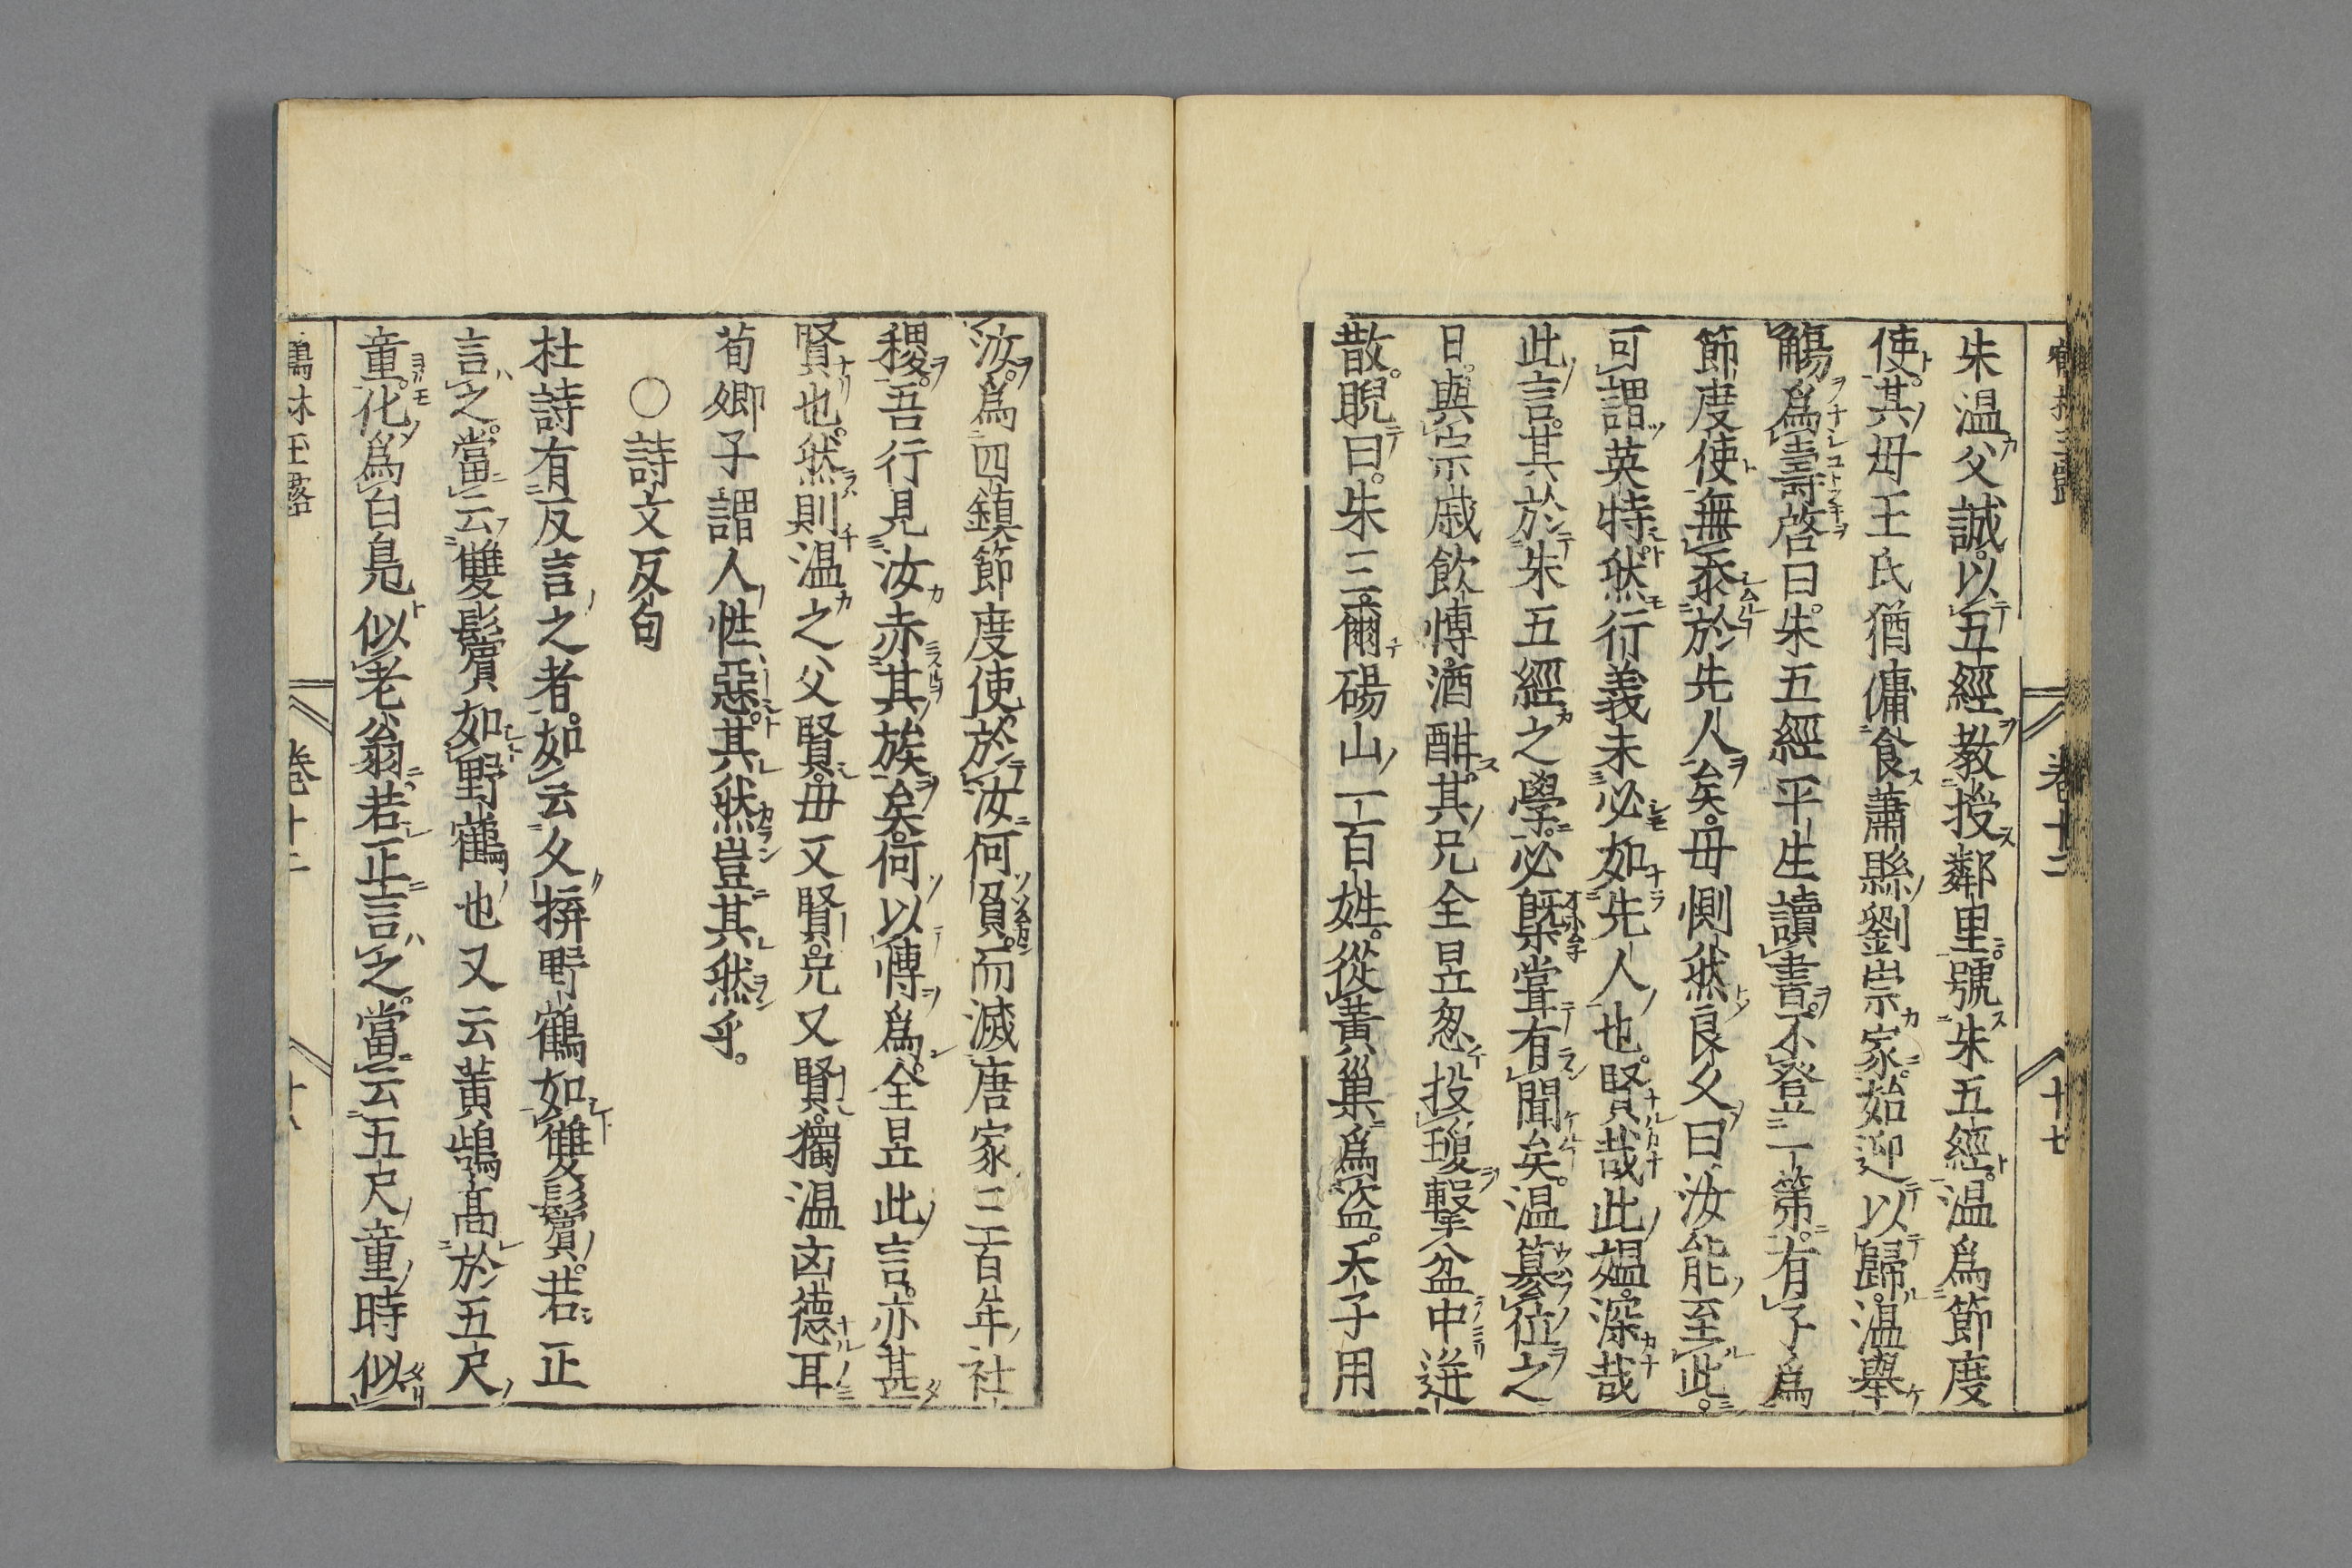 卷十二
十七
朱温父誠以五經教授鄰里號朱五經温爲節度
使其母王氏猶傭食蕭縣劉崇家始迎以歸温舉
觴爲壽啓曰朱五經平生讀書不登一第有子爲
節度使無忝於先人矣母惻然良久曰汝能至此
可謂英特然行義未必如先人也賢哉此媼深哉
此言其於朱五經之學必槩嘗有聞矣温簒位之
日與宗戚飲愽酒酣其兄全昱忽投瓊擊盆中迸
散睨曰朱三爾碭山一百姓從黃巢爲盗天子用
汝爲四鎮節度使於汝何負而滅唐家三百年社
稷吾行見汝赤其族矣何以愽爲全昱此言亦甚
賢也然則温之父賢母又賢兄又賢獨温凶德耳
荀卿子謂人性惡其然豈其然乎
○詩文反句
杜詩有反言之者如云久拚野鶴如雙鬢若正
言之當云雙鬢如野鶴也又云黃鵠高於五尺
童化爲白鳧似老翁若正言之當云五尺童時似
鶴林玉露
卷十二